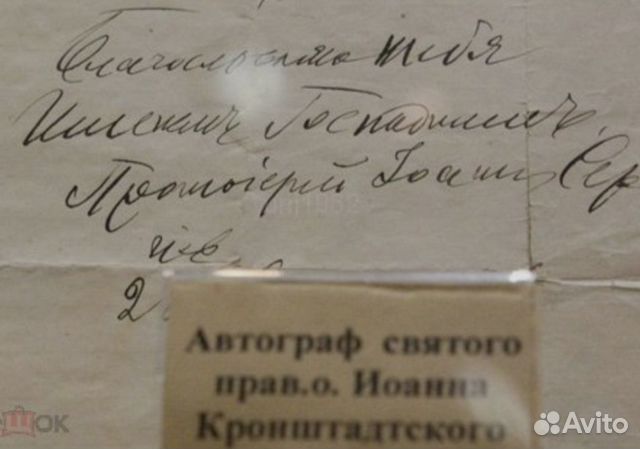 Благословляю тебя
Именемъ Господнимъ.
Протоіерей Іоаннъ Сер
гіев
2
Автограф святого
прав.о. Иоанна
Кронштадтского
Avito